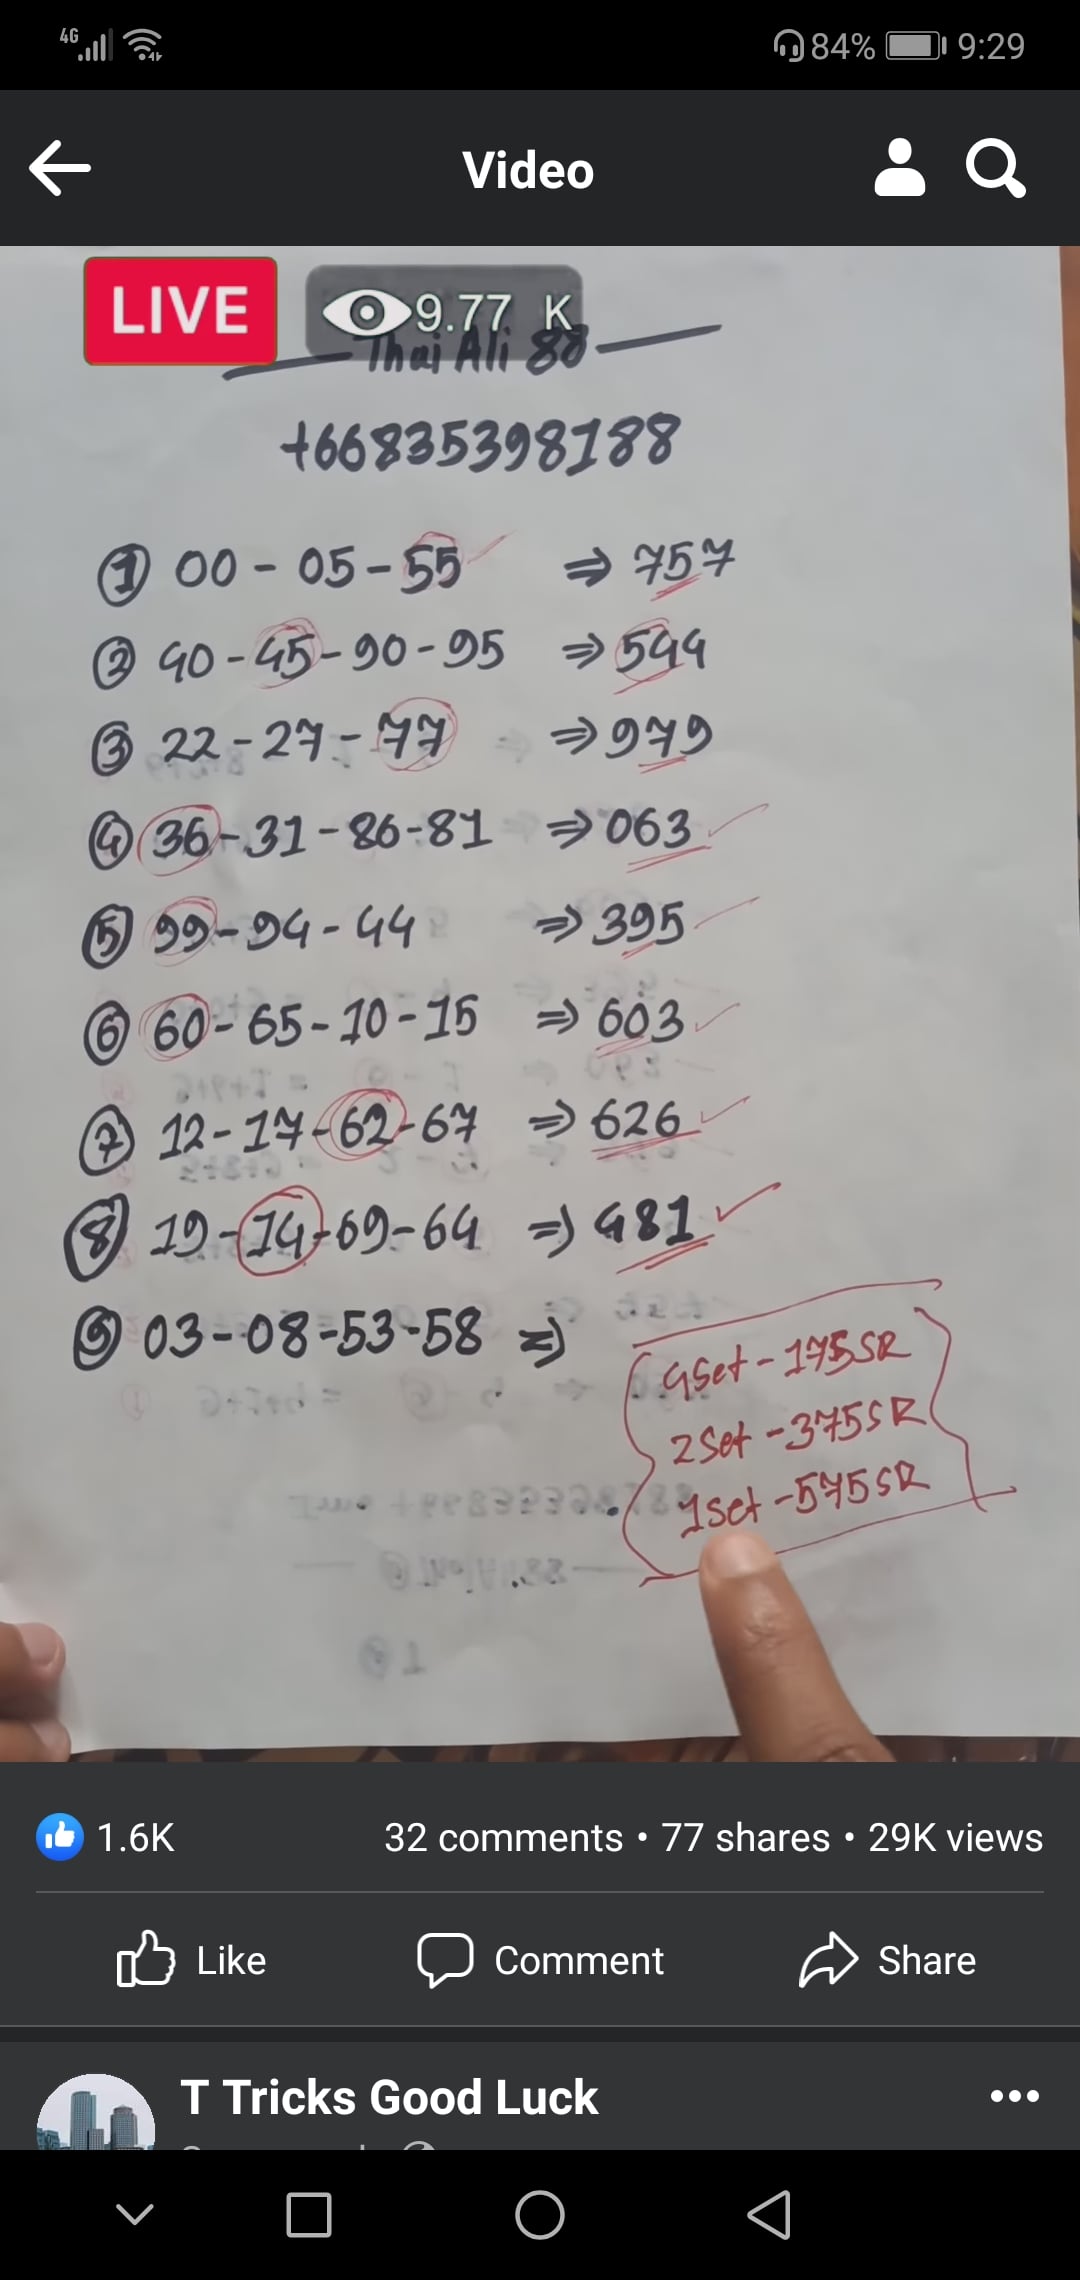 4G 84% 9:29
Video
LIVE 9.77 K
Thai Ali 88
+66835398188
① 00 - 05 - 55 ⇒ 757
② 40 - 45 - 90 - 95 ⇒ 544
③ 22 - 27 - 77 ⇒ 979
④ 36 - 31 - 86 - 81 ⇒ 063
⑤ 99 - 94 - 44 ⇒ 395
⑥ 60 - 65 - 10 - 15 ⇒ 603
⑦ 12 - 17 - 62 - 67 ⇒ 626
⑧ 19 - 14 - 69 - 64 ⇒ 481
⑨ 03 - 08 - 53 - 58 ⇒
4Set - 175SR
2Set - 375SR
1Set - 575SR
1.6K 32 comments • 77 shares • 29K views
Like Comment Share
T Tricks Good Luck